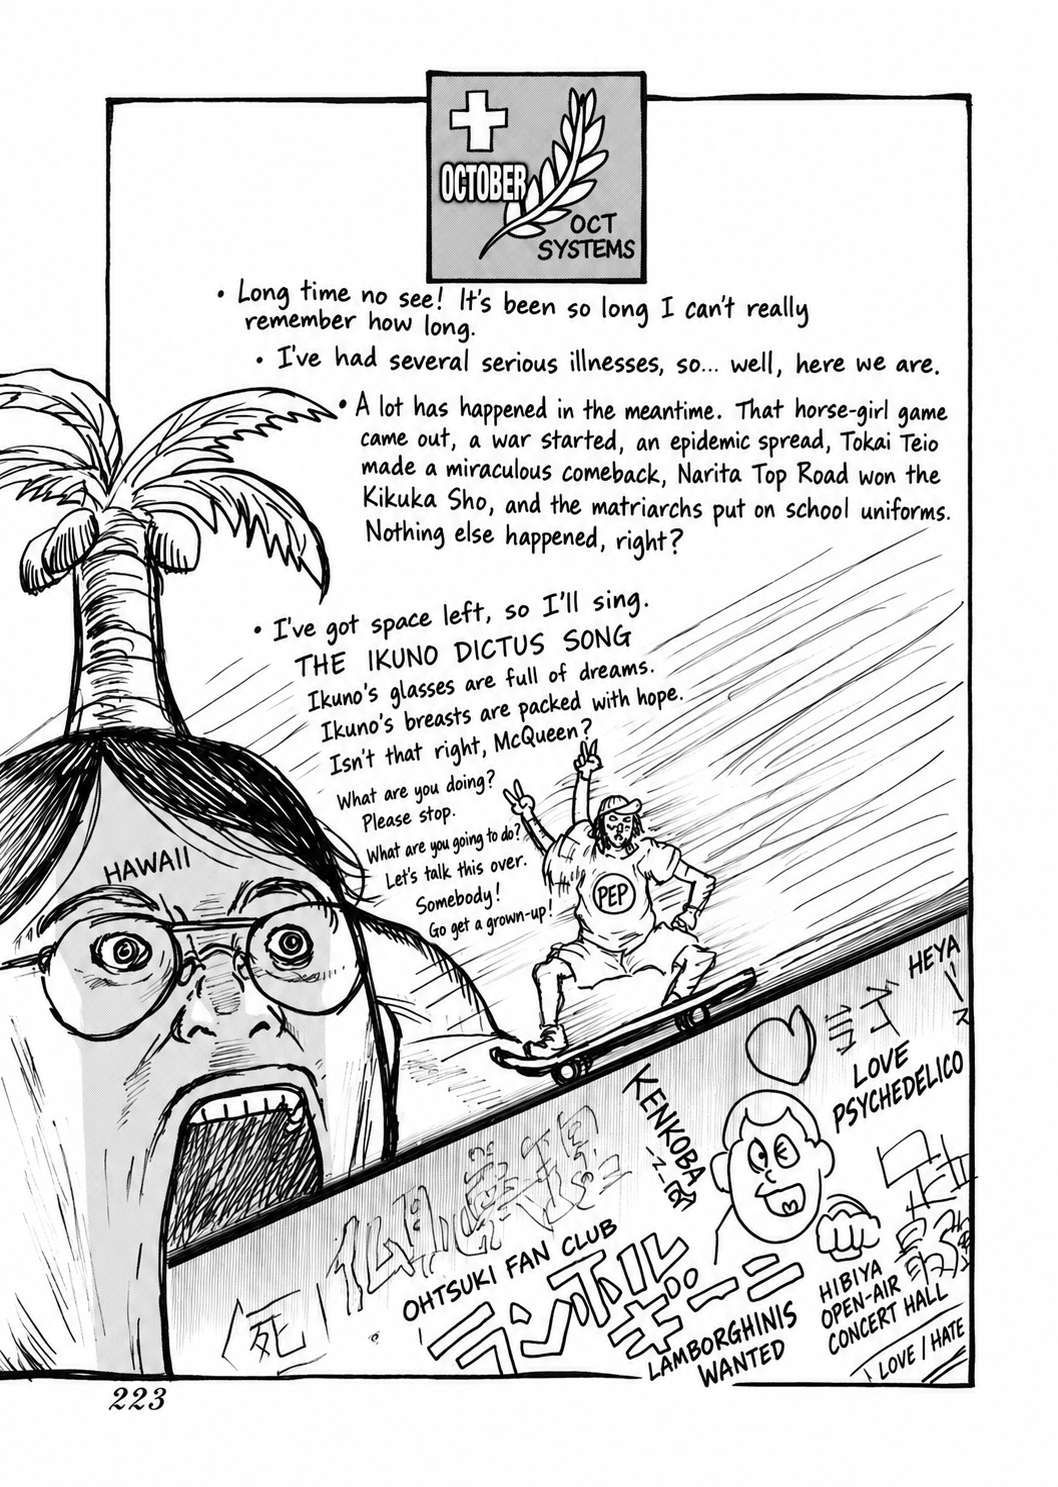 OCTOBER
OCT
SYSTEMS
• Long time no see! It's been so long I can't really
remember how long.
• I've had several serious illnesses, so... well, here we are.
• A lot has happened in the meantime. That horse-girl game
came out, a war started, an epidemic spread, Tokai Teio
made a miraculous comeback, Narita Top Road won the
Kikuka Sho, and the matriarchs put on school uniforms.
Nothing else happened, right?
• I've got space left, so I'll sing.
THE IKUNO DICTUS SONG
Ikuno's glasses are full of dreams.
Ikuno's breasts are packed with hope.
Isn't that right, McQueen?
What are you doing?
Please stop.
What are you going to do?
Let's talk this over.
Somebody!
Go get a grown-up!
HAWAII
PEP
HEYA
LOVE
PSYCHEDELICO
KENKOBA
OHTSUKI FAN CLUB
ランボル
ギーニ
LAMBORGHINIS
WANTED
HIBIYA
OPEN-AIR
CONCERT HALL
LOVE / HATE
死
223